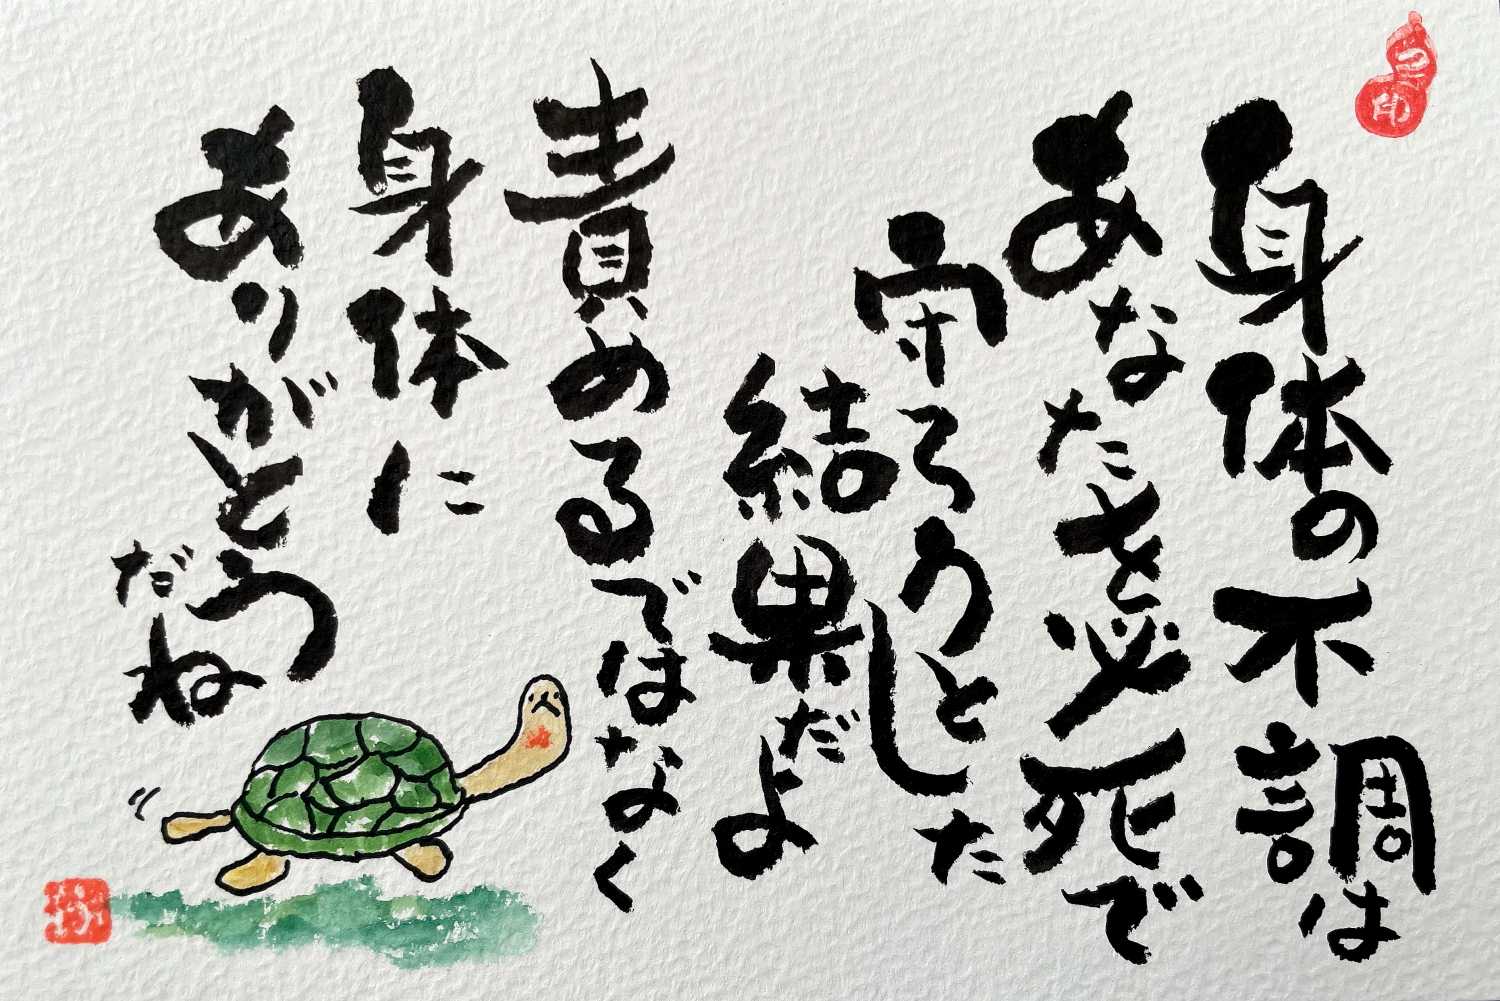 身体の不調は
あなたを必死で
守ろうとした
結果だよ
責めるではなく
身体に
ありがとう
だね